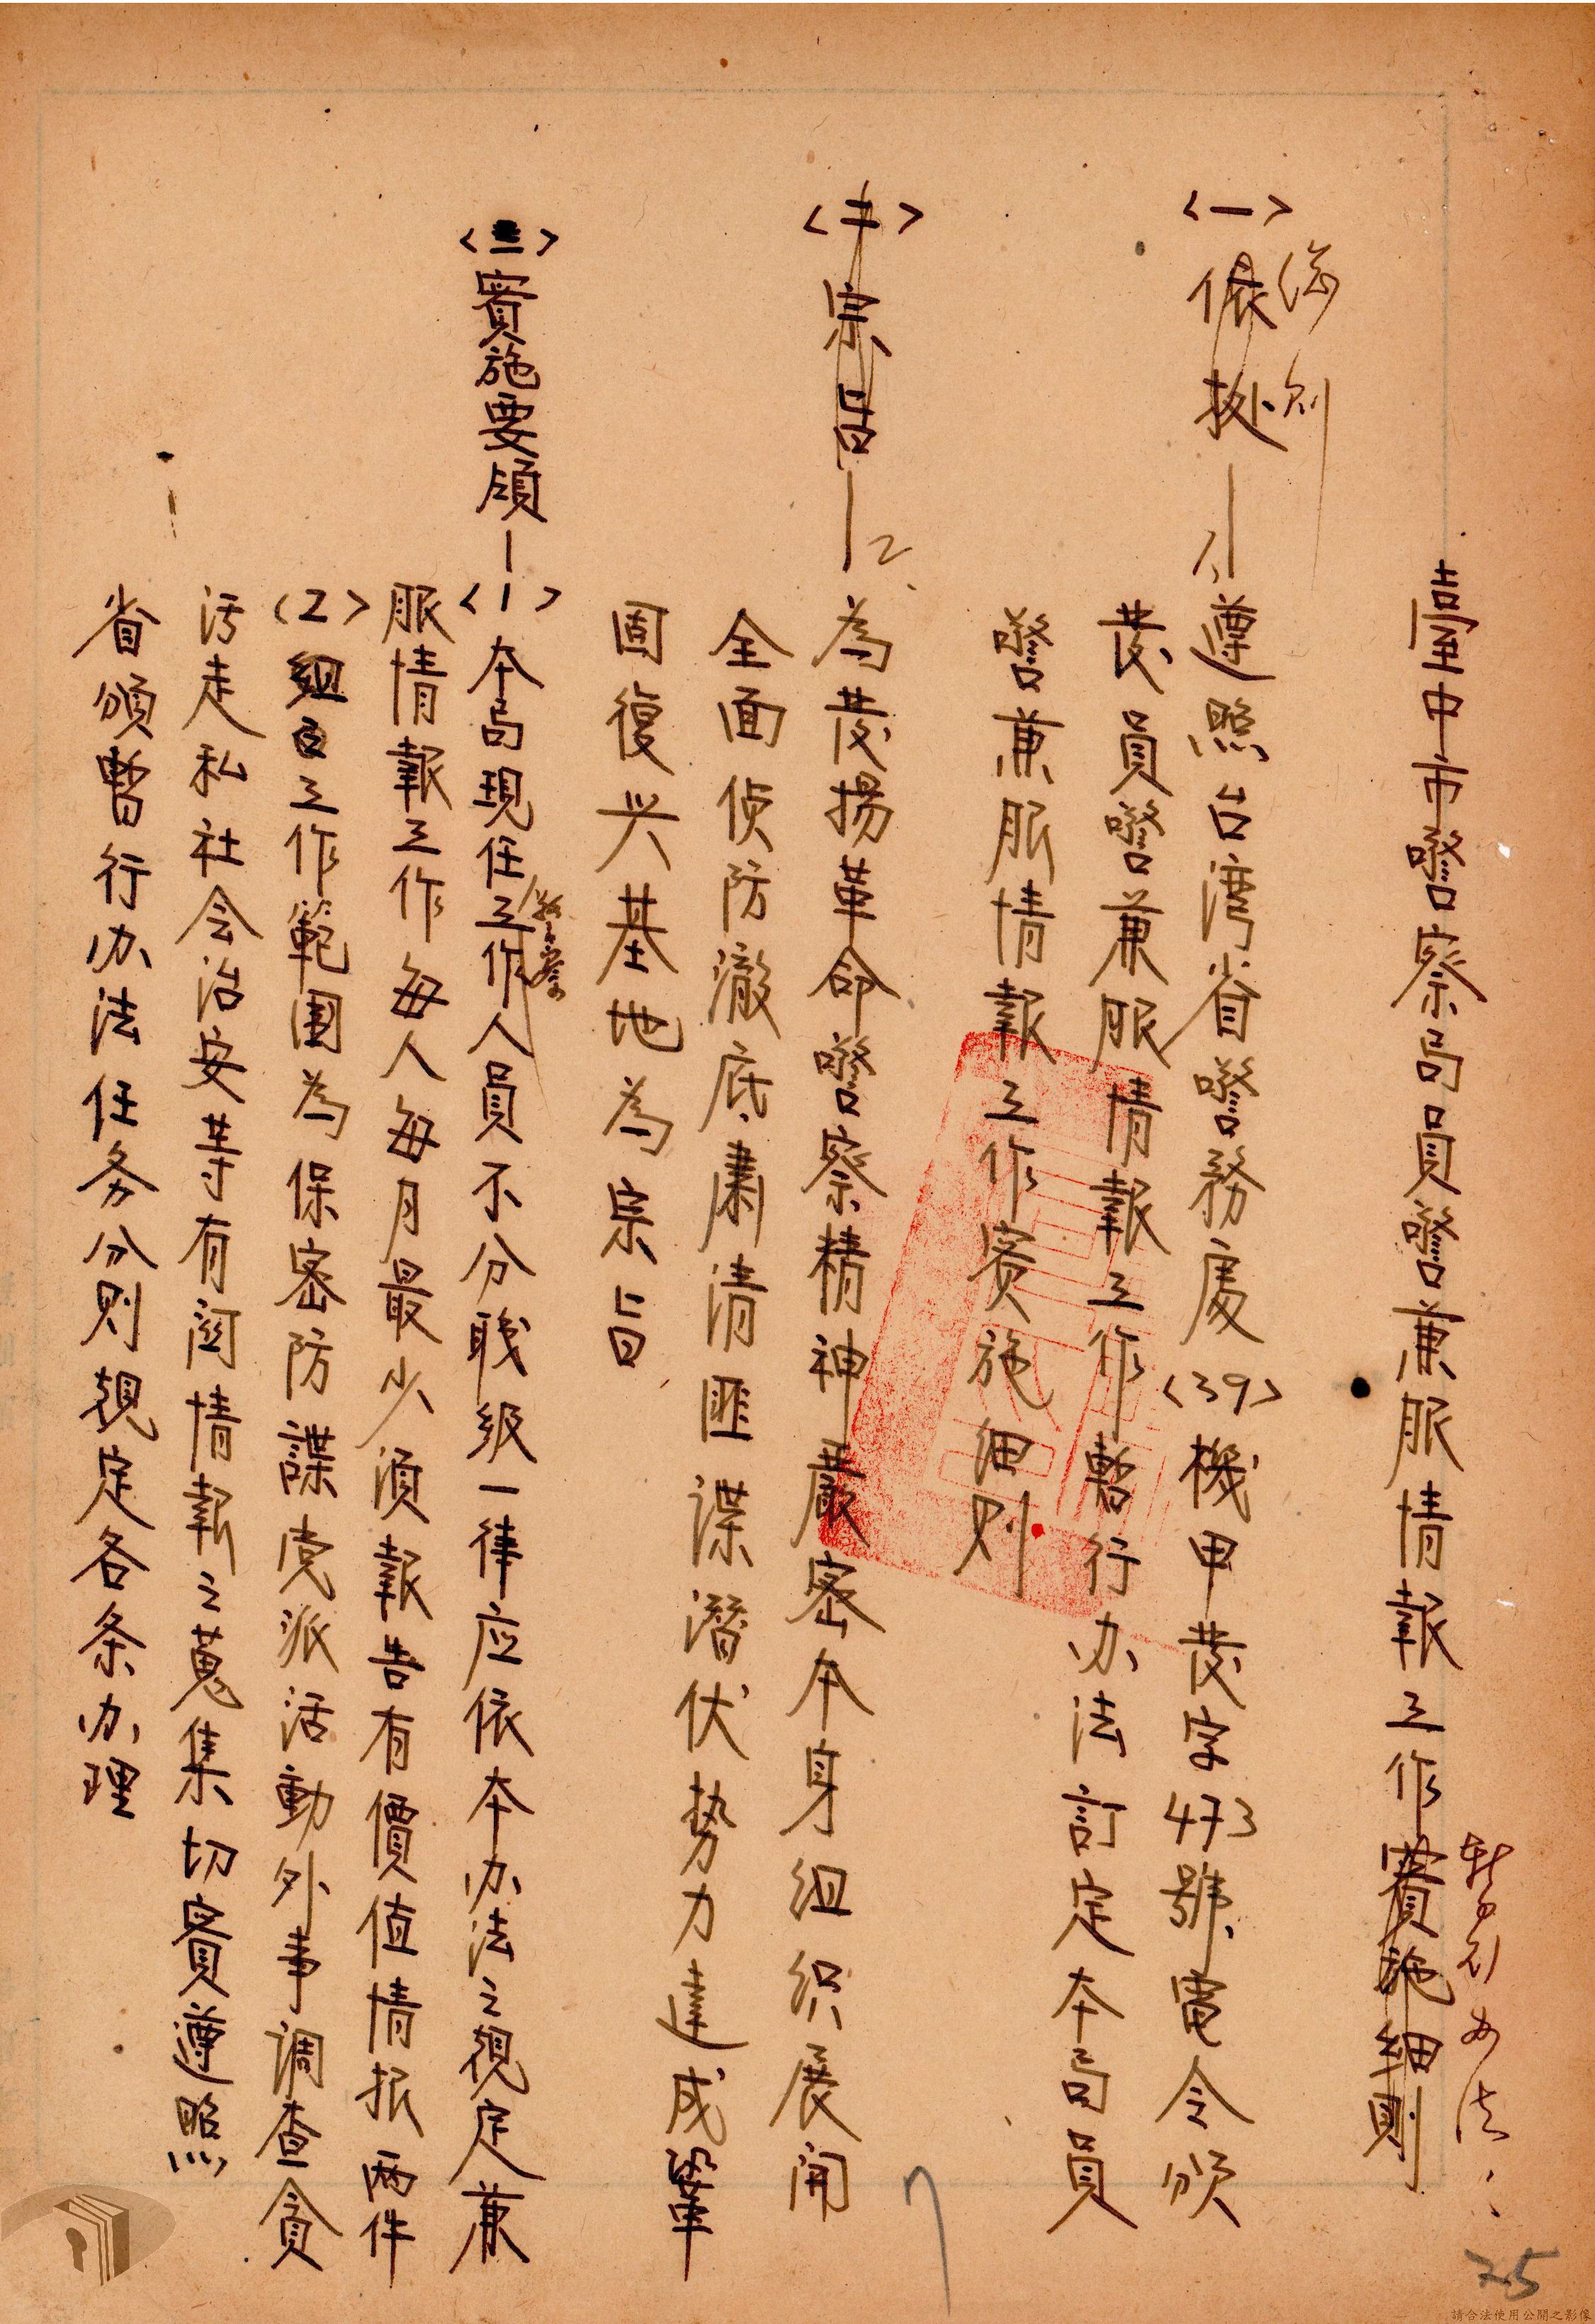 臺中市警察局員警兼服情報工作實施細則
暫行办法
總則
〈一〉依㨿—1.遵照台湾省警務處〈39〉機甲發字473號電令頒
發員警兼服情報工作暫行办法訂定本局員
警兼服情報工作實施細則
〈二〉宗旨—2、為發揚革命警察精神嚴密本身组织展開
全面侦防澈底肅清匪諜潛伏势力達成鞏
固復兴基地為宗旨
〈三〉實施要領—〈1〉本局現任工作人員不分職级一律应依本办法之規定兼
員警
服情報工作每人每月最少須報告有價值情报两件
〈2〉组工作範圍為保密防諜党派活動外事调查貪
污走私社会治安等有関情報之蒐集切實遵照
省頒暫行办法任务分则規定各条办理
75
請合法使用公開之影像